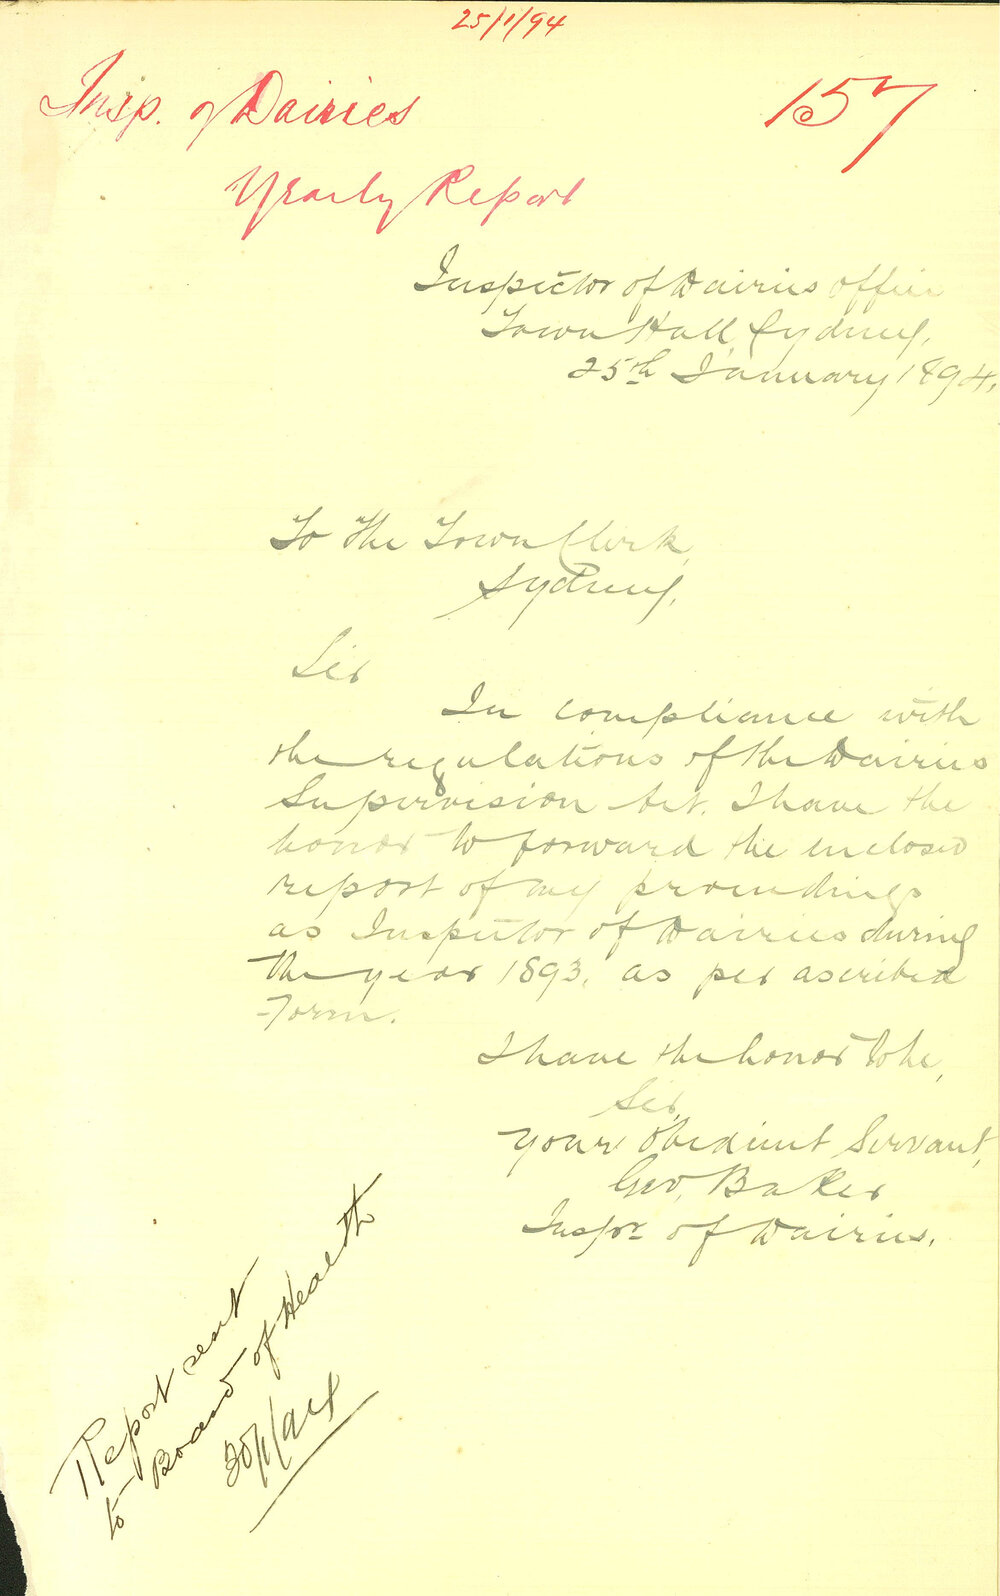 25/1/94
Insp. of Dairies
157
Yearly Report
Inspector of Dairies office
Town Hall, Sydney,
25th January 1894,
To The Town Clerk,
Sydney,
Sir
In compliance with
the regulations of the Dairies
Supervision Act. I have the
honor to forward the enclosed
report of my proceedings
as Inspector of Dairies during
the year 1893, as per ascribed
Form.
I have the honor to be,
Sir,
Your Obedient Servant,
Geo, Baker
Inspr of Dairies.
Report sent
to Board of Health
30/1/94